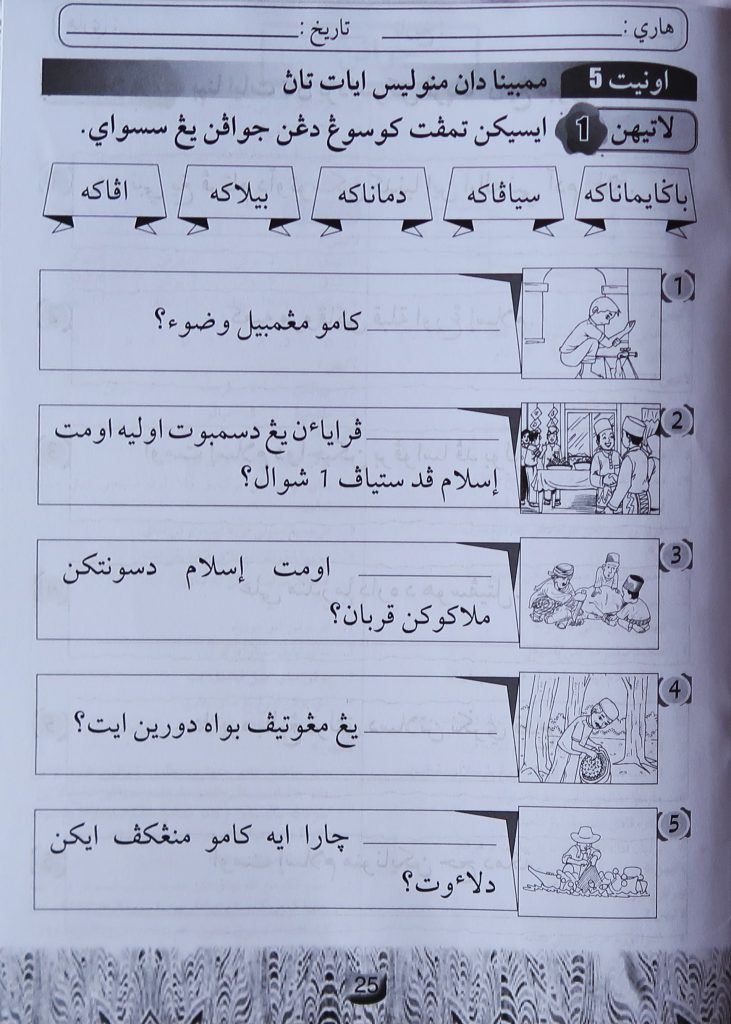 هاري : ____________ تاريخ : ____________
اونيت 5 ممبينا دان منوليس ايات تاڽ
لاتيهن 1 ايسيكن تمڤت كوسوڠ دڠن جواڤن يڠ سسواي.
باݢايماناكه سياڤاكه دماناكه بيلاكه اڤاكه
1
____________ كامو مڠمبيل وضوء؟
2
____________ ڤراياءن يڠ دسمبوت اوليه اومت
إسلام ڤد ستياڤ 1 شوال؟
3
____________ اومت إسلام دسونتكن
ملاكوكن قربان؟
4
____________ يڠ مڠوتيڤ بواه دورين ايت؟
5
____________ چارا ايه كامو منڠكڤ ايكن
دلاءوت؟
25